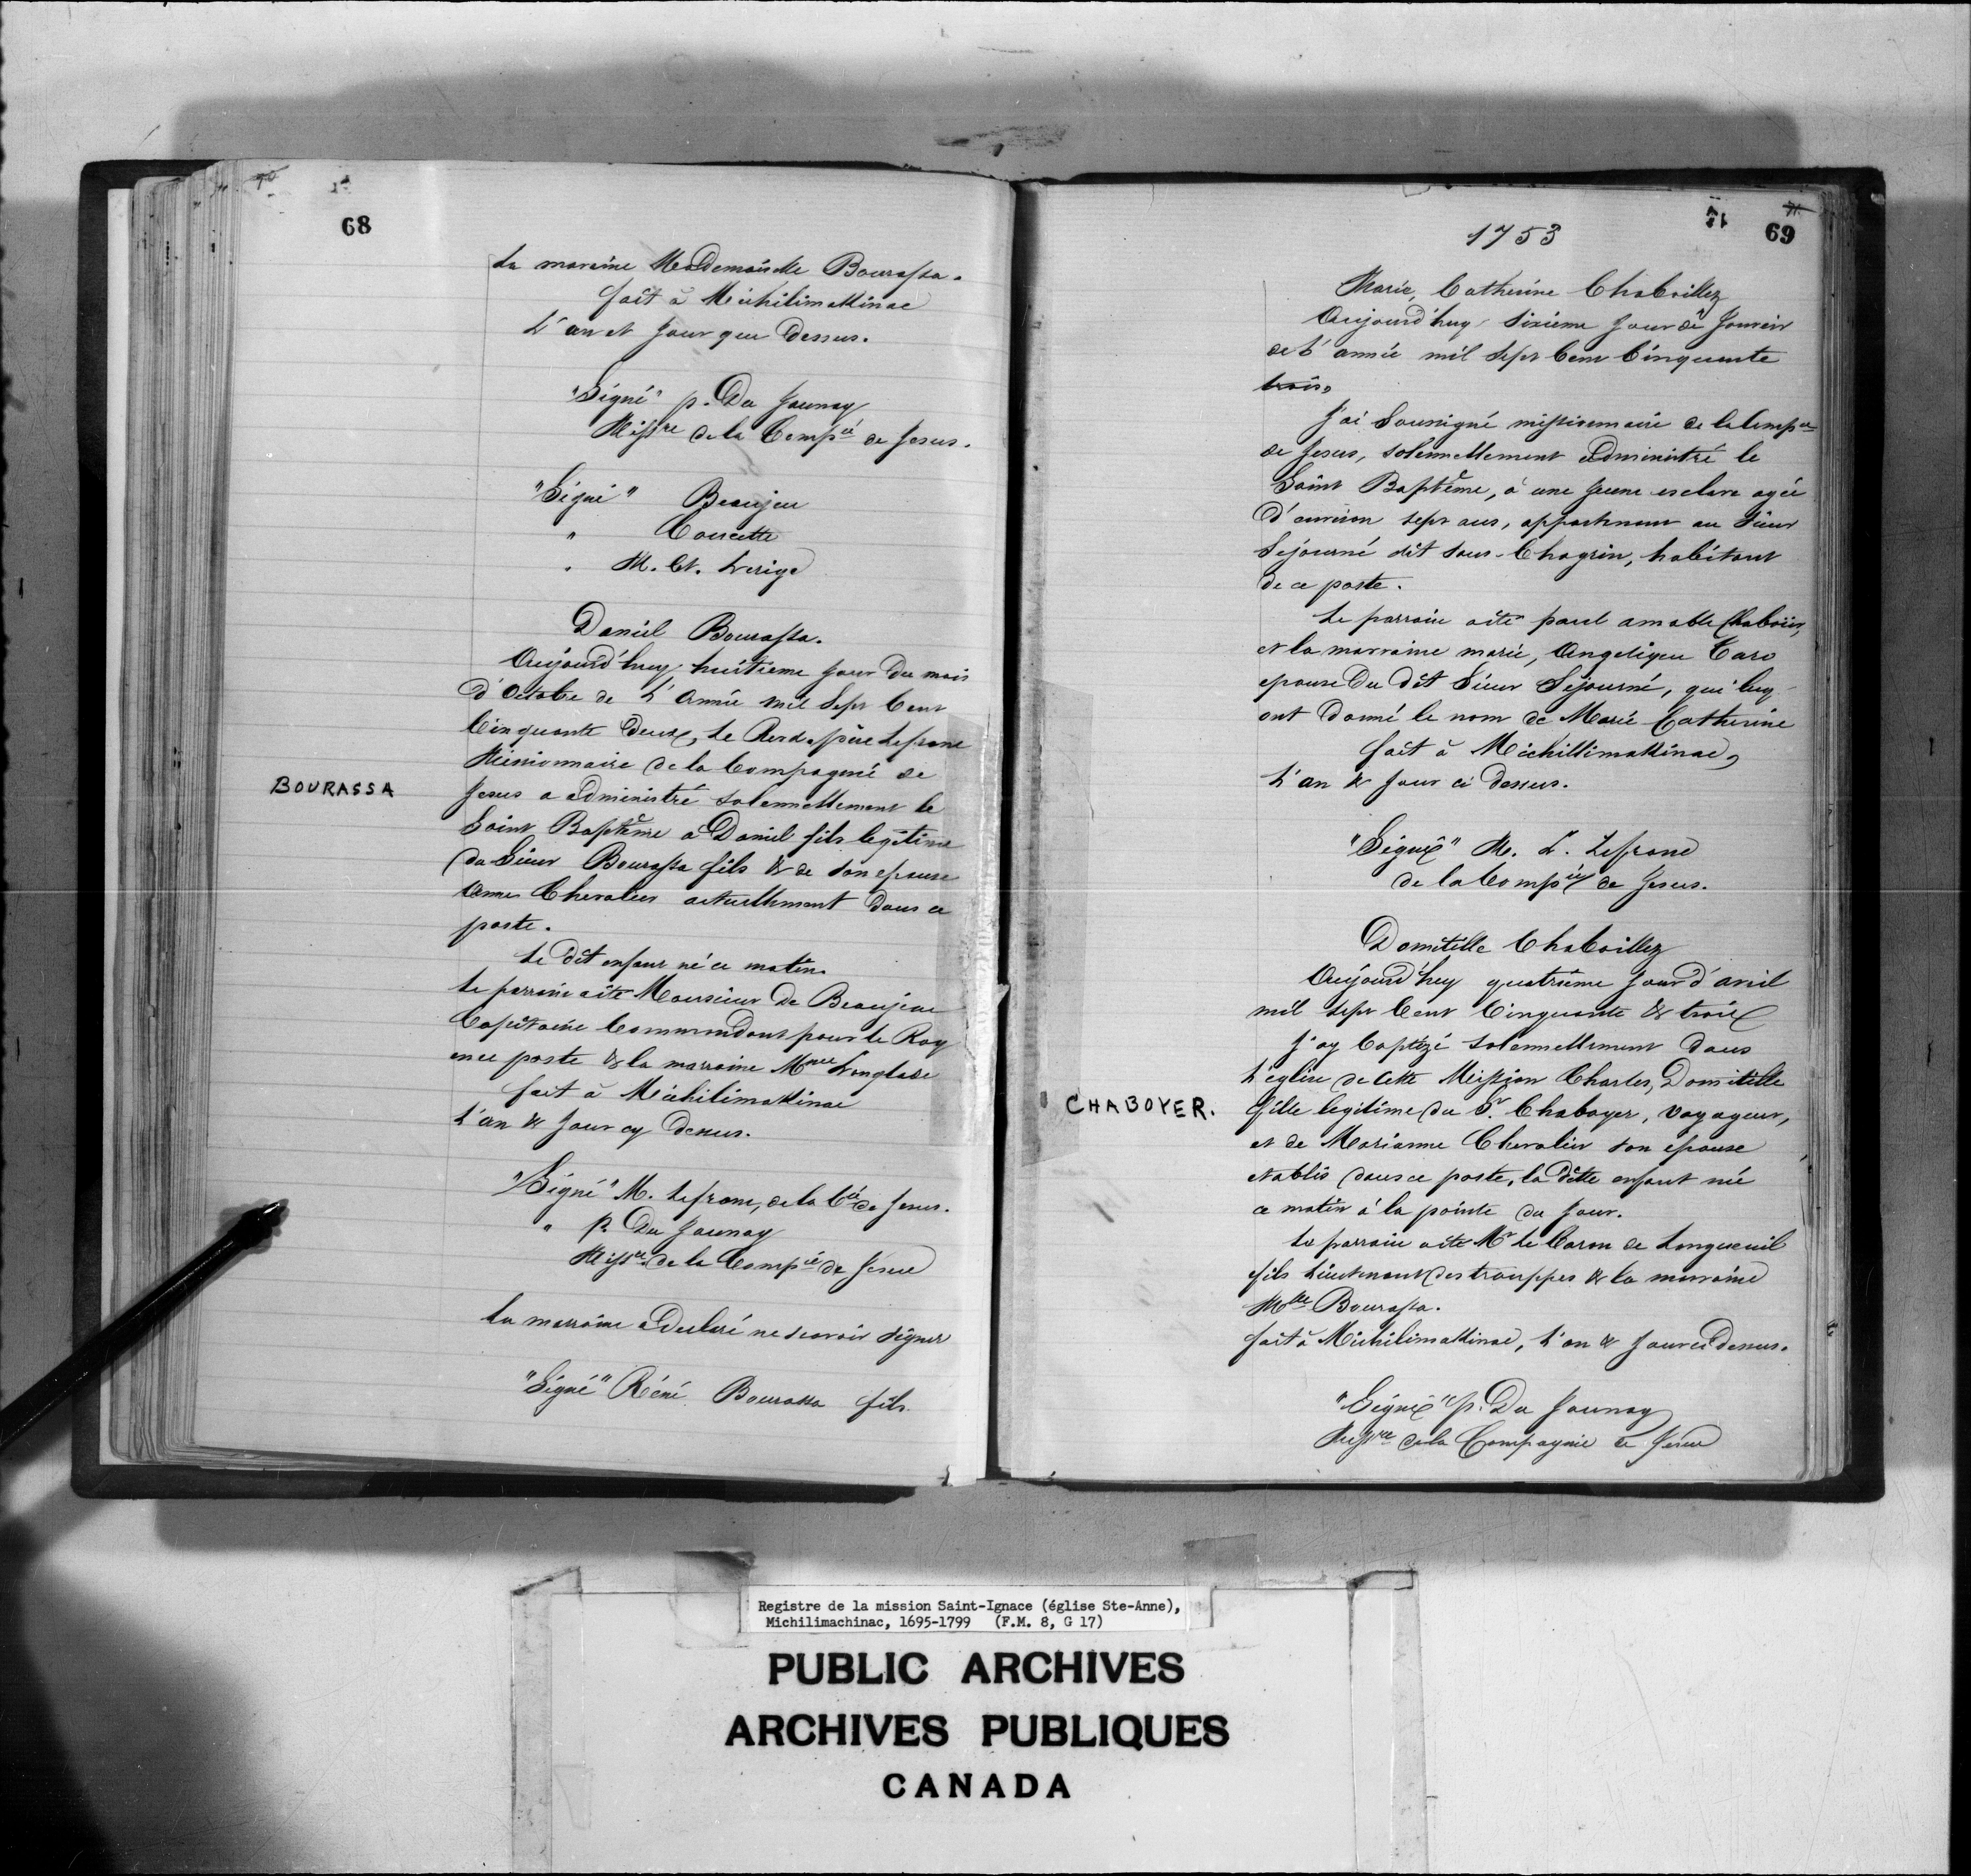 68
La maraine Mademoiselle Bourassa.
fait à Michilimakinac
L'an et Jour que Dessus.
"Signé" p. Du Jaunay
Missre de la Compié de Jesus.
"Signé" Beaujeu
" Coucette
" M. Ct. Lerige
Daniel Bourassa.
Aujourd'huy, huitieme jour du mois
d'Octobre de L'Année mil Sept Cent
Cinquante Deux, Le Revd. père Lefranc
Missionnaire de la Compagnié de
BOURASSA
Jesus a administré solennellement le
Saint Baptême à Daniel fils legitime
du Sieur Bourassa fils & de son epouse
Anne Chevalier actuellement dans ce
poste.
Le dit enfant né ce matin.
Le parrain a été Monsieur De Beaujeau
Capitaine Commandant pour le Roy
en ce poste & la marraine Mme Langlade
fait à Michilimakinac
L'an & Jour cy dessus.
"Signé" M. Lefranc, de la Cié de Jesus.
" P. Du Jaunay
Missre de la Compié de Jesus
La marraine a declaré ne scavoir signer
"Signé" Réné Bourassa fils.
69
1753
Marie, Catherine Chaboillez
Aujourd'huy sixieme jour de Janvier
de l'année mil sept Cent Cinquante
trois.
J'ai Soussigné missionnaire de la Compie
de Jesus, solennellement administré le
Saint Baptême, à une jeune esclave agée
d'environ sept ans, appartenant au Sieur
Sejourné dit sans-Chagrin, habitant
de ce poste.
Le parrain a été paul amable Chaboiez,
et la marraine marie, Angelique Taro
epouse Du dit Sieur Sejourné, qui luy
ont donné le nom de Marie Catherine
fait à Michillimakinac,
L'an & Jour ci dessus.
"Signé" M. L. Lefranc
de la Compié de Jesus.
Domitille Chaboillez
Aujourd'huy quatrième jour d'avril
mil sept Cent Cinquante & trois
J'ay baptizé solennellement dans
L'eglise de cette Mission Charles, Domitille
CHABOYER.
fille legitime du Sr. Chaboyer, voyageur,
et de Marianne Chevalier son epouse
etablis dans ce poste, la ditte enfant née
ce matin à la pointe du jour.
Le parrain a été Mr Le Baron de Longueuil
fils Lieutenant des trouppes & la marraine
Mlle Bourassa.
fait à Michilimakinac, L'an & Jour ci dessus.
"Signé" P. Du Jaunay
Missre de la Compagnie de Jesus
Registre de la mission Saint-Ignace (église Ste-Anne),
Michilimachinac, 1695-1799 (F.M. 8, G 17)
PUBLIC ARCHIVES
ARCHIVES PUBLIQUES
CANADA